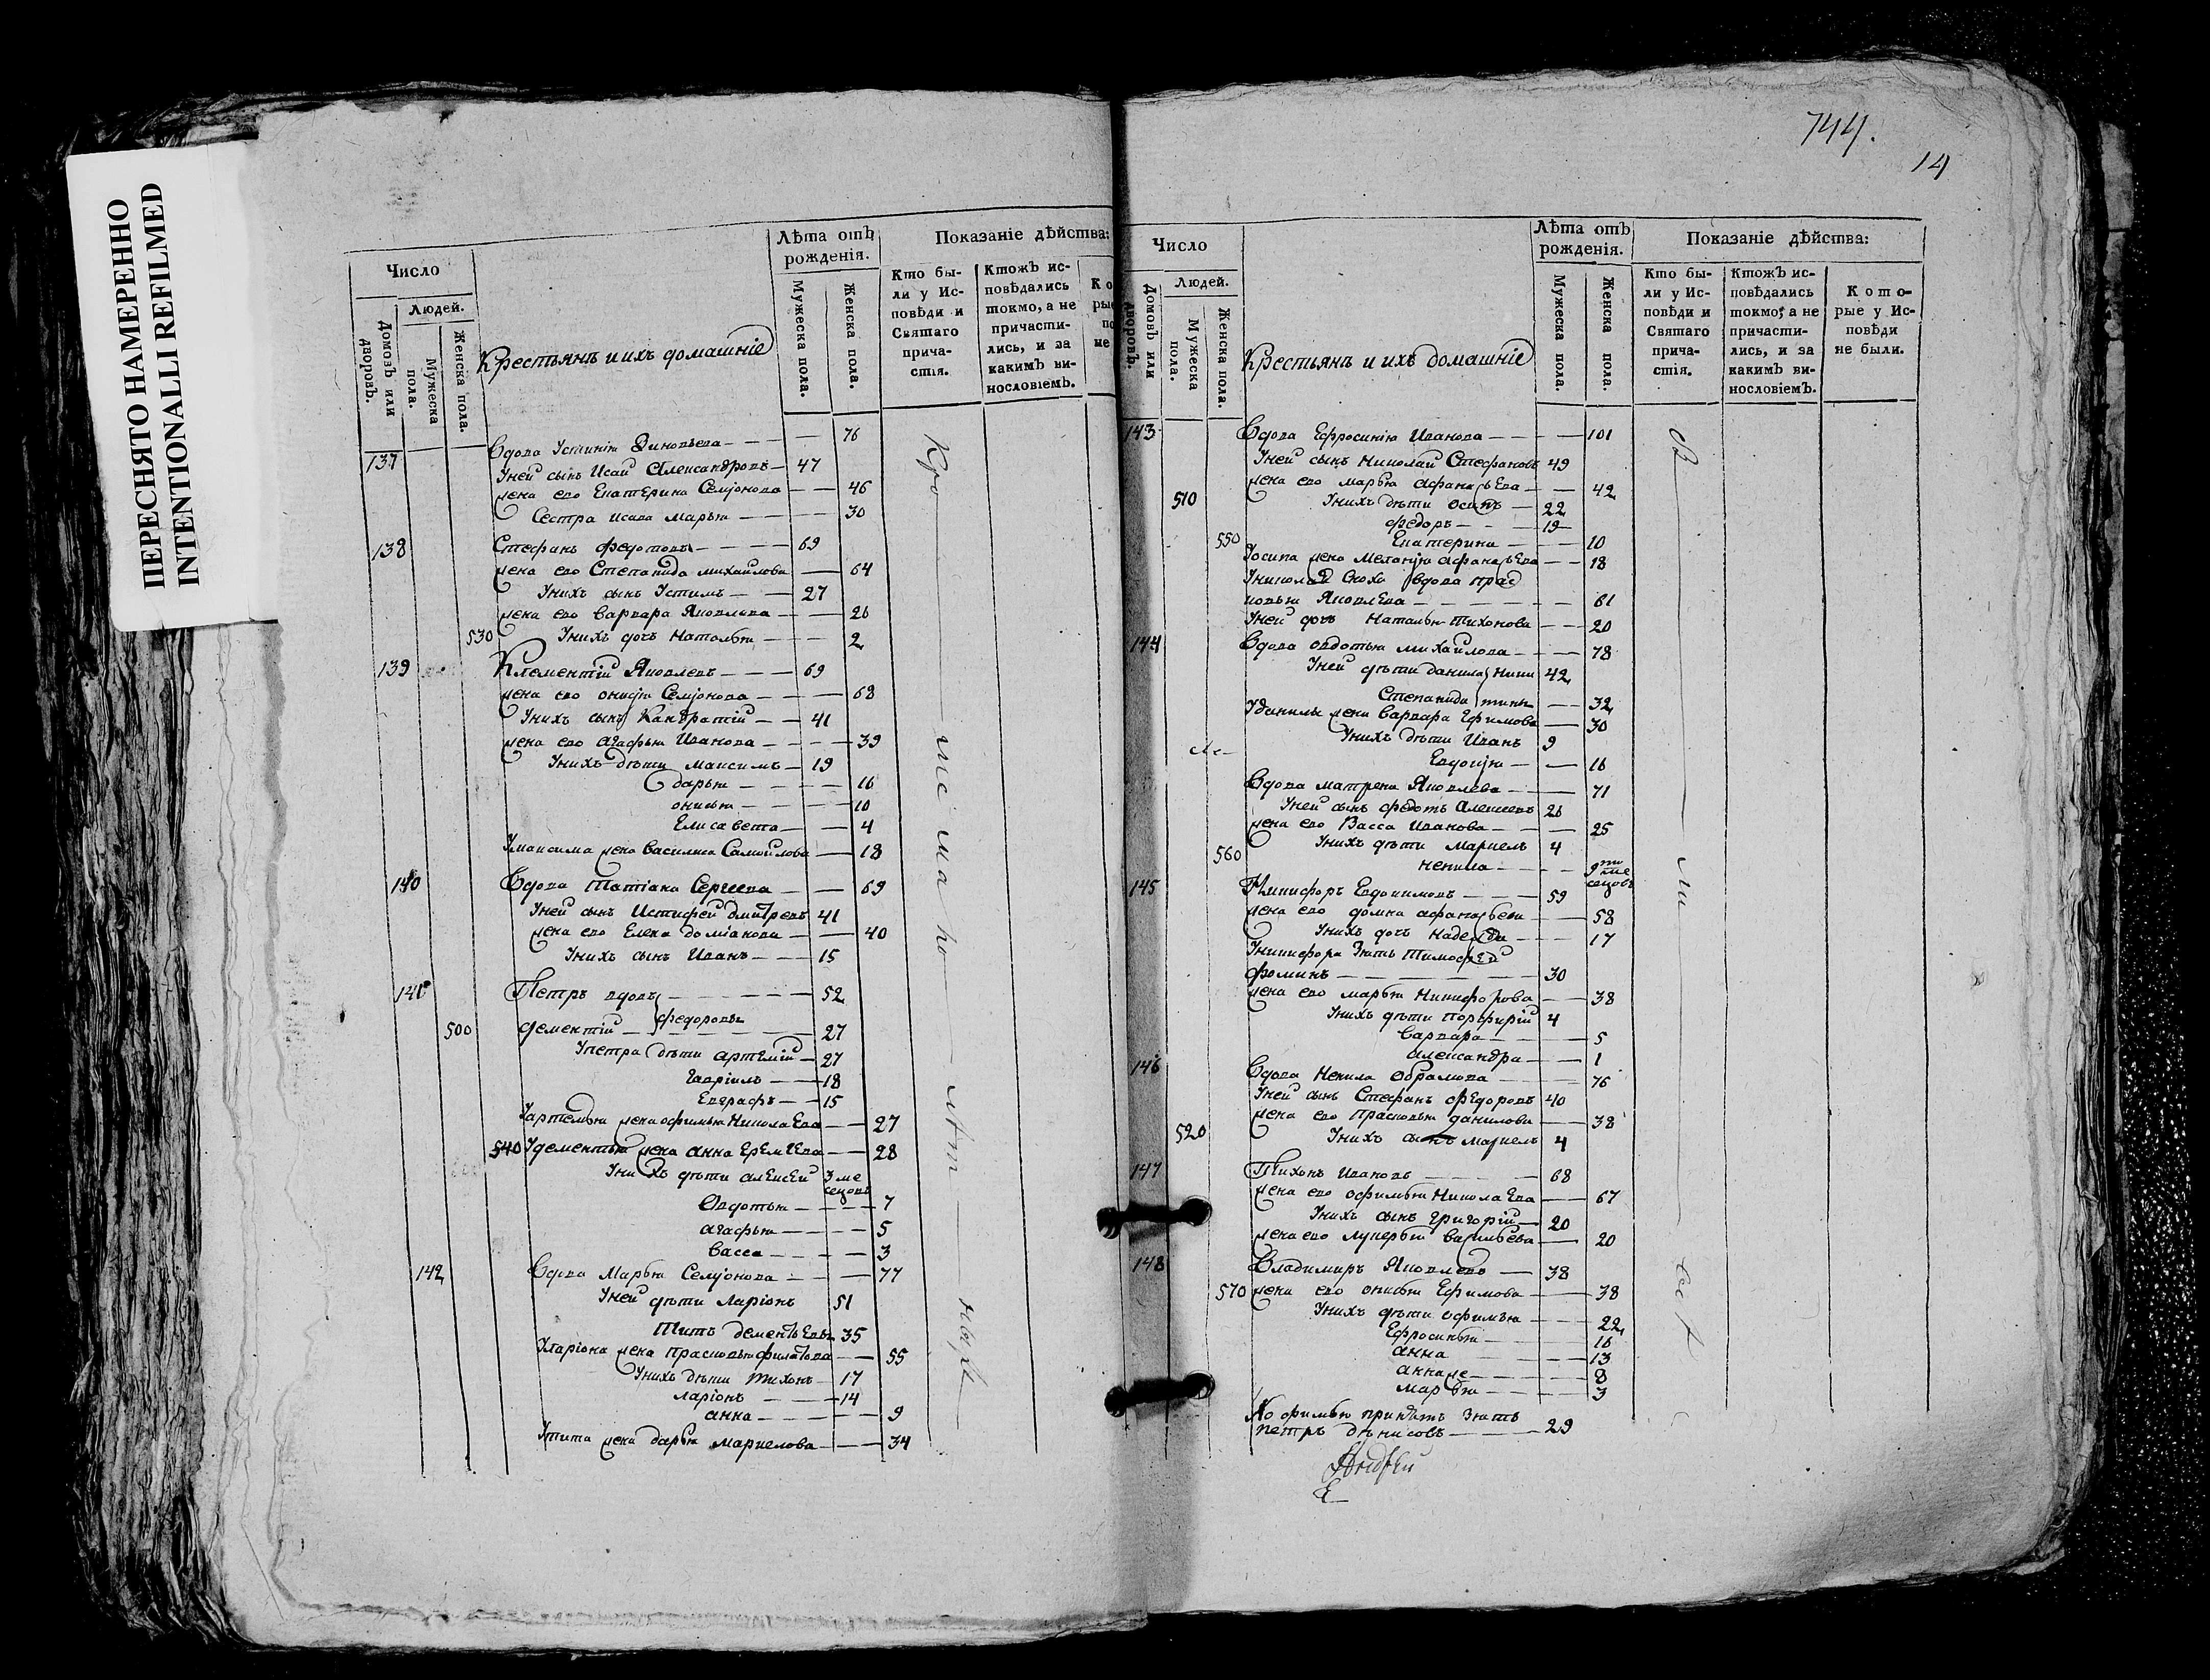 ПЕРЕСНЯТО НАМЕРЕННО
INTENTIONALLI REFILMED
Число
Людей.
Домовъ или дворовъ.
Мужеска пола.
Женска пола.
Крестьянъ и ихъ домашніе
Лѣта отъ рожденія.
Мужеска пола.
Женска пола.
Показаніе дѣйства:
Кто бы-
ли у Ис-
повѣди и
Святаго
прича-
стія.
Ктожъ ис-
повѣдались
токмо, а не
причасти-
лись, и за
какимъ ви-
нословіемъ.
137 Вдова Устинія Зиновьева 76
Уней сынъ Исай Александровъ 47
жена ево Екатерина Семіонова 46
Сестра Исаева Марья 30
138 Стефанъ Федотовъ 69
жена ево Степанида Михайлова 64
Унихъ сынъ Устимъ 27
жена ево Варвара Яковлева 26
530 Унихъ дочь Наталья 2
139 Клементій Яковлевъ 69
жена ево Онисія Семіонова 68
Унихъ сынъ Кандратій 41
жена ево Агафья Иванова 39
Унихъ дѣти Максимъ 19
Дарья 16
Онисья 10
Елисавета 4
Умаксима жена Василиса Самойлова 18
140 Вдова Татіана Сергеева 69
Уней сынъ Истифей Дмитревъ 41
жена ево Елена Доміанова 40
Унихъ сынъ Иванъ 15
141 Петръ вдовъ 52
Федоровы
500 Дементій 27
Упетра дѣти Артемій 27
Гавріилъ 18
Евграфъ 15
Уартемья жена Офимья Николаева 27
540 Удементья жена Анна Еремеева 28
Унихъ дѣти Алексей 3 ме
сецовъ
Овдотья 7
Агафья 5
Васса 3
142 Вдова Марья Семіонова 77
Уней дѣти Ларіонъ 51
Титъ Дементьевы 35
Уларіона жена Прасковья Филатова 55
Унихъ дѣти Тихонъ 17
Ларіонъ 14
Анна 9
Утита жена Дарья Маркелова 34
744.
14
Число
Людей.
Домовъ или дворовъ.
Мужеска пола.
Женска пола.
Крестьянъ и ихъ домашніе
Лѣта отъ рожденія.
Мужеска пола.
Женска пола.
Показаніе дѣйства:
Кто бы-
ли у Ис-
повѣди и
Святаго
прича-
стія.
Ктожъ ис-
повѣдались
токмо, а не
причасти-
лись, и за
какимъ ви-
нословіемъ.
Кото-
рые у Ис-
повѣди
не были.
143 Вдова Ефросинія Иванова 101
Уней сынъ Николай Стефановъ 49
жена ево Марья Афанасьева 42
510 Унихъ дѣти Осипъ 22
Федоръ 19
550 Екатерина 10
Уосипа жена Меланія Афанасьева 18
Униколая Сноха вдова Прас
ковья Яковлева 61
Уней дочь Наталья Тихонова 20
144 Вдова Овдотья Михайлова 78
Уней дѣти Данила Ники 42
Степанида тины 32
Уданилы жена Варвара Ефимова 30
Унихъ дѣти Иванъ 9
Евдокія 16
Вдова Матрена Яковлева 71
Уней сынъ Федотъ Алексеевъ 26
жена ево Васса Иванова 25
Унихъ дѣти Маркелъ 4
560 Ненила 9ти ме
сецовъ
145 Никифоръ Евдокимовъ 59
жена ево Домна Афанасьева 58
Унихъ дочь Надежда 17
Уникифора Зять Тимофей
Фоминъ 30
жена ево Марья Никифорова 38
Унихъ дѣти Порфирій 4
Варвара 5
Александра 1
146 Вдова Ненила Обрамова 76
Уней сынъ Стефанъ Федоровъ 40
жена ево Прасковья Данилова 38
520 Унихъ сынъ Маркелъ 4
147 Тихонъ Ивановъ 68
жена ево Офимья Николаева 67
Унихъ сынъ Григорій 20
жена ево Лукерья Васильева 20
148 Владимиръ Яковлевъ 38
570 жена ево Онисья Ефимова 38
Унихъ дѣти Офимья 22
Ефросинья 16
Анна 13
Анна же 8
Марья 3
Ко Офимьи принятъ Зять
Петръ Денисовъ 29